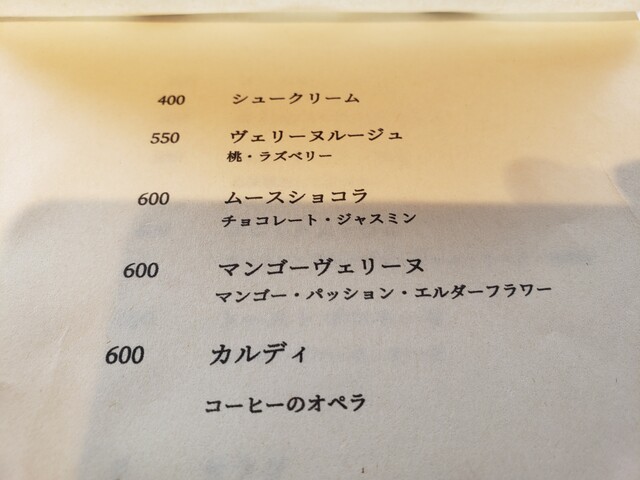 400 シュークリーム
550 ヴェリーヌルージュ
桃・ラズベリー
600 ムースショコラ
チョコレート・ジャスミン
600 マンゴーヴェリーヌ
マンゴー・パッション・エルダーフラワー
600 カルディ
コーヒーのオペラ